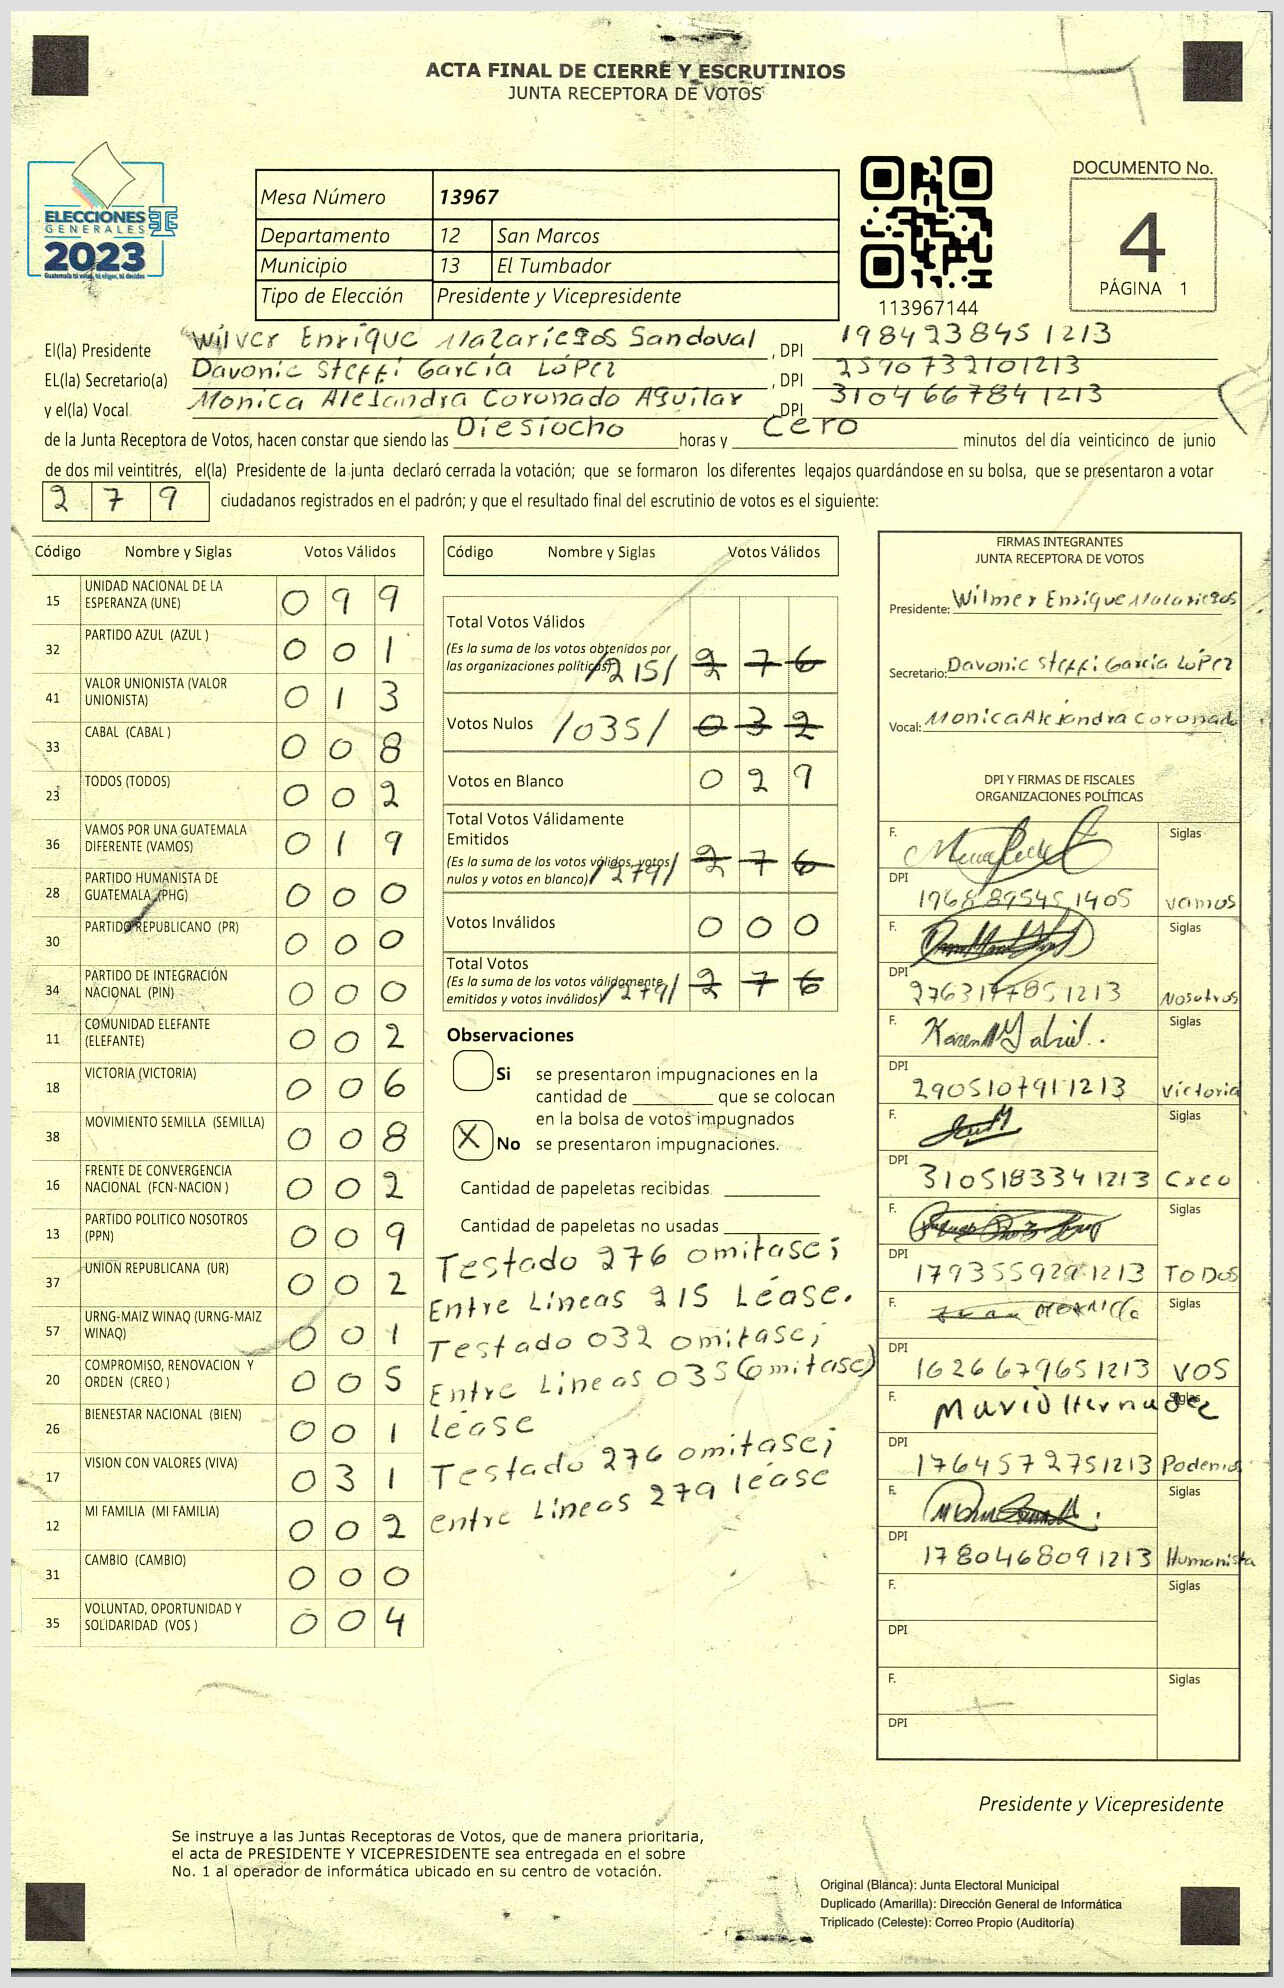 ACTA FINAL DE CIERRE Y ESCRUTINIOS
JUNTA RECEPTORA DE VOTOS
ELECCIONES
GENERALES
2023
Guatemala tú votas, tú eliges, tú decides
Mesa Número 13967
Departamento 12 San Marcos
Municipio 13 El Tumbador
Tipo de Elección Presidente y Vicepresidente
113967144
DOCUMENTO No.
4
PÁGINA 1
El(la) Presidente Wilver Enrique Mazariegos Sandoval, DPI 1984938451213
EL(la) Secretario(a) Davonic Steffi García López, DPI 2590732101213
y el(la) Vocal Monica Alejandra Coronado Aguilar DPI 3104667841213
de la Junta Receptora de Votos, hacen constar que siendo las Diesiocho horas y Cero minutos del día veinticinco de junio
de dos mil veintitrés, el(la) Presidente de la junta declaró cerrada la votación; que se formaron los diferentes legajos guardándose en su bolsa, que se presentaron a votar
279 ciudadanos registrados en el padrón; y que el resultado final del escrutinio de votos es el siguiente:
Código Nombre y Siglas Votos Válidos
15 UNIDAD NACIONAL DE LA ESPERANZA (UNE) 099
32 PARTIDO AZUL (AZUL ) 001
41 VALOR UNIONISTA (VALOR UNIONISTA) 013
33 CABAL (CABAL ) 008
23 TODOS (TODOS) 002
36 VAMOS POR UNA GUATEMALA DIFERENTE (VAMOS) 019
28 PARTIDO HUMANISTA DE GUATEMALA (PHG) 000
30 PARTIDO REPUBLICANO (PR) 000
34 PARTIDO DE INTEGRACIÓN NACIONAL (PIN) 000
11 COMUNIDAD ELEFANTE (ELEFANTE) 002
18 VICTORIA (VICTORIA) 006
38 MOVIMIENTO SEMILLA (SEMILLA) 008
16 FRENTE DE CONVERGENCIA NACIONAL (FCN-NACION ) 002
13 PARTIDO POLITICO NOSOTROS (PPN) 009
37 UNION REPUBLICANA (UR) 002
57 URNG-MAIZ WINAQ (URNG-MAIZ WINAQ) 001
20 COMPROMISO, RENOVACION Y ORDEN (CREO ) 005
26 BIENESTAR NACIONAL (BIEN) 001
17 VISION CON VALORES (VIVA) 031
12 MI FAMILIA (MI FAMILIA) 002
31 CAMBIO (CAMBIO) 000
35 VOLUNTAD, OPORTUNIDAD Y SOLIDARIDAD (VOS ) 004
Código Nombre y Siglas Votos Válidos
Total Votos Válidos
(Es la suma de los votos obtenidos por
las organizaciones políticas) /215/ 276
Votos Nulos /035/ 032
Votos en Blanco 029
Total Votos Válidamente
Emitidos
(Es la suma de los votos válidos, votos
nulos y votos en blanco) /279/ 276
Votos Inválidos 000
Total Votos
(Es la suma de los votos válidamente
emitidos y votos inválidos) /279/ 276
Observaciones
Si se presentaron impugnaciones en la
cantidad de ________ que se colocan
en la bolsa de votos impugnados
X No se presentaron impugnaciones.
Cantidad de papeletas recibidas
Cantidad de papeletas no usadas
Testado 276 omitase;
Entre Líneas 215 Léase.
Testado 032 omitase;
Entre Lineas 035 (omitase)
léase
Testado 276 omitase;
entre Líneas 279 léase
FIRMAS INTEGRANTES
JUNTA RECEPTORA DE VOTOS
Presidente: Wilmer Enrique Mazariegos
Secretario: Davonic Steffi García López
Vocal: Monica Alejandra Coronado
DPI Y FIRMAS DE FISCALES
ORGANIZACIONES POLÍTICAS
F. Siglas
DPI 1968895451405 Vamos
F. Siglas
DPI 2763177851213 Nosotros
F. Karen Gabriel. Siglas
DPI 2905107911213 Victoria
F. Siglas
DPI 3105183341213 Creo
F. Siglas
DPI 1793559291213 TODOS
F. Siglas
DPI 1626679651213 VOS
F. Siglas
DPI 1764572751213 Podemos
F. Siglas
DPI 1780468091213 Humanista
F. Siglas
DPI
F. Siglas
DPI
Presidente y Vicepresidente
Se instruye a las Juntas Receptoras de Votos, que de manera prioritaria,
el acta de PRESIDENTE Y VICEPRESIDENTE sea entregada en el sobre
No. 1 al operador de informática ubicado en su centro de votación.
Original (Blanca): Junta Electoral Municipal
Duplicado (Amarilla): Dirección General de Informática
Triplicado (Celeste): Correo Propio (Auditoría)